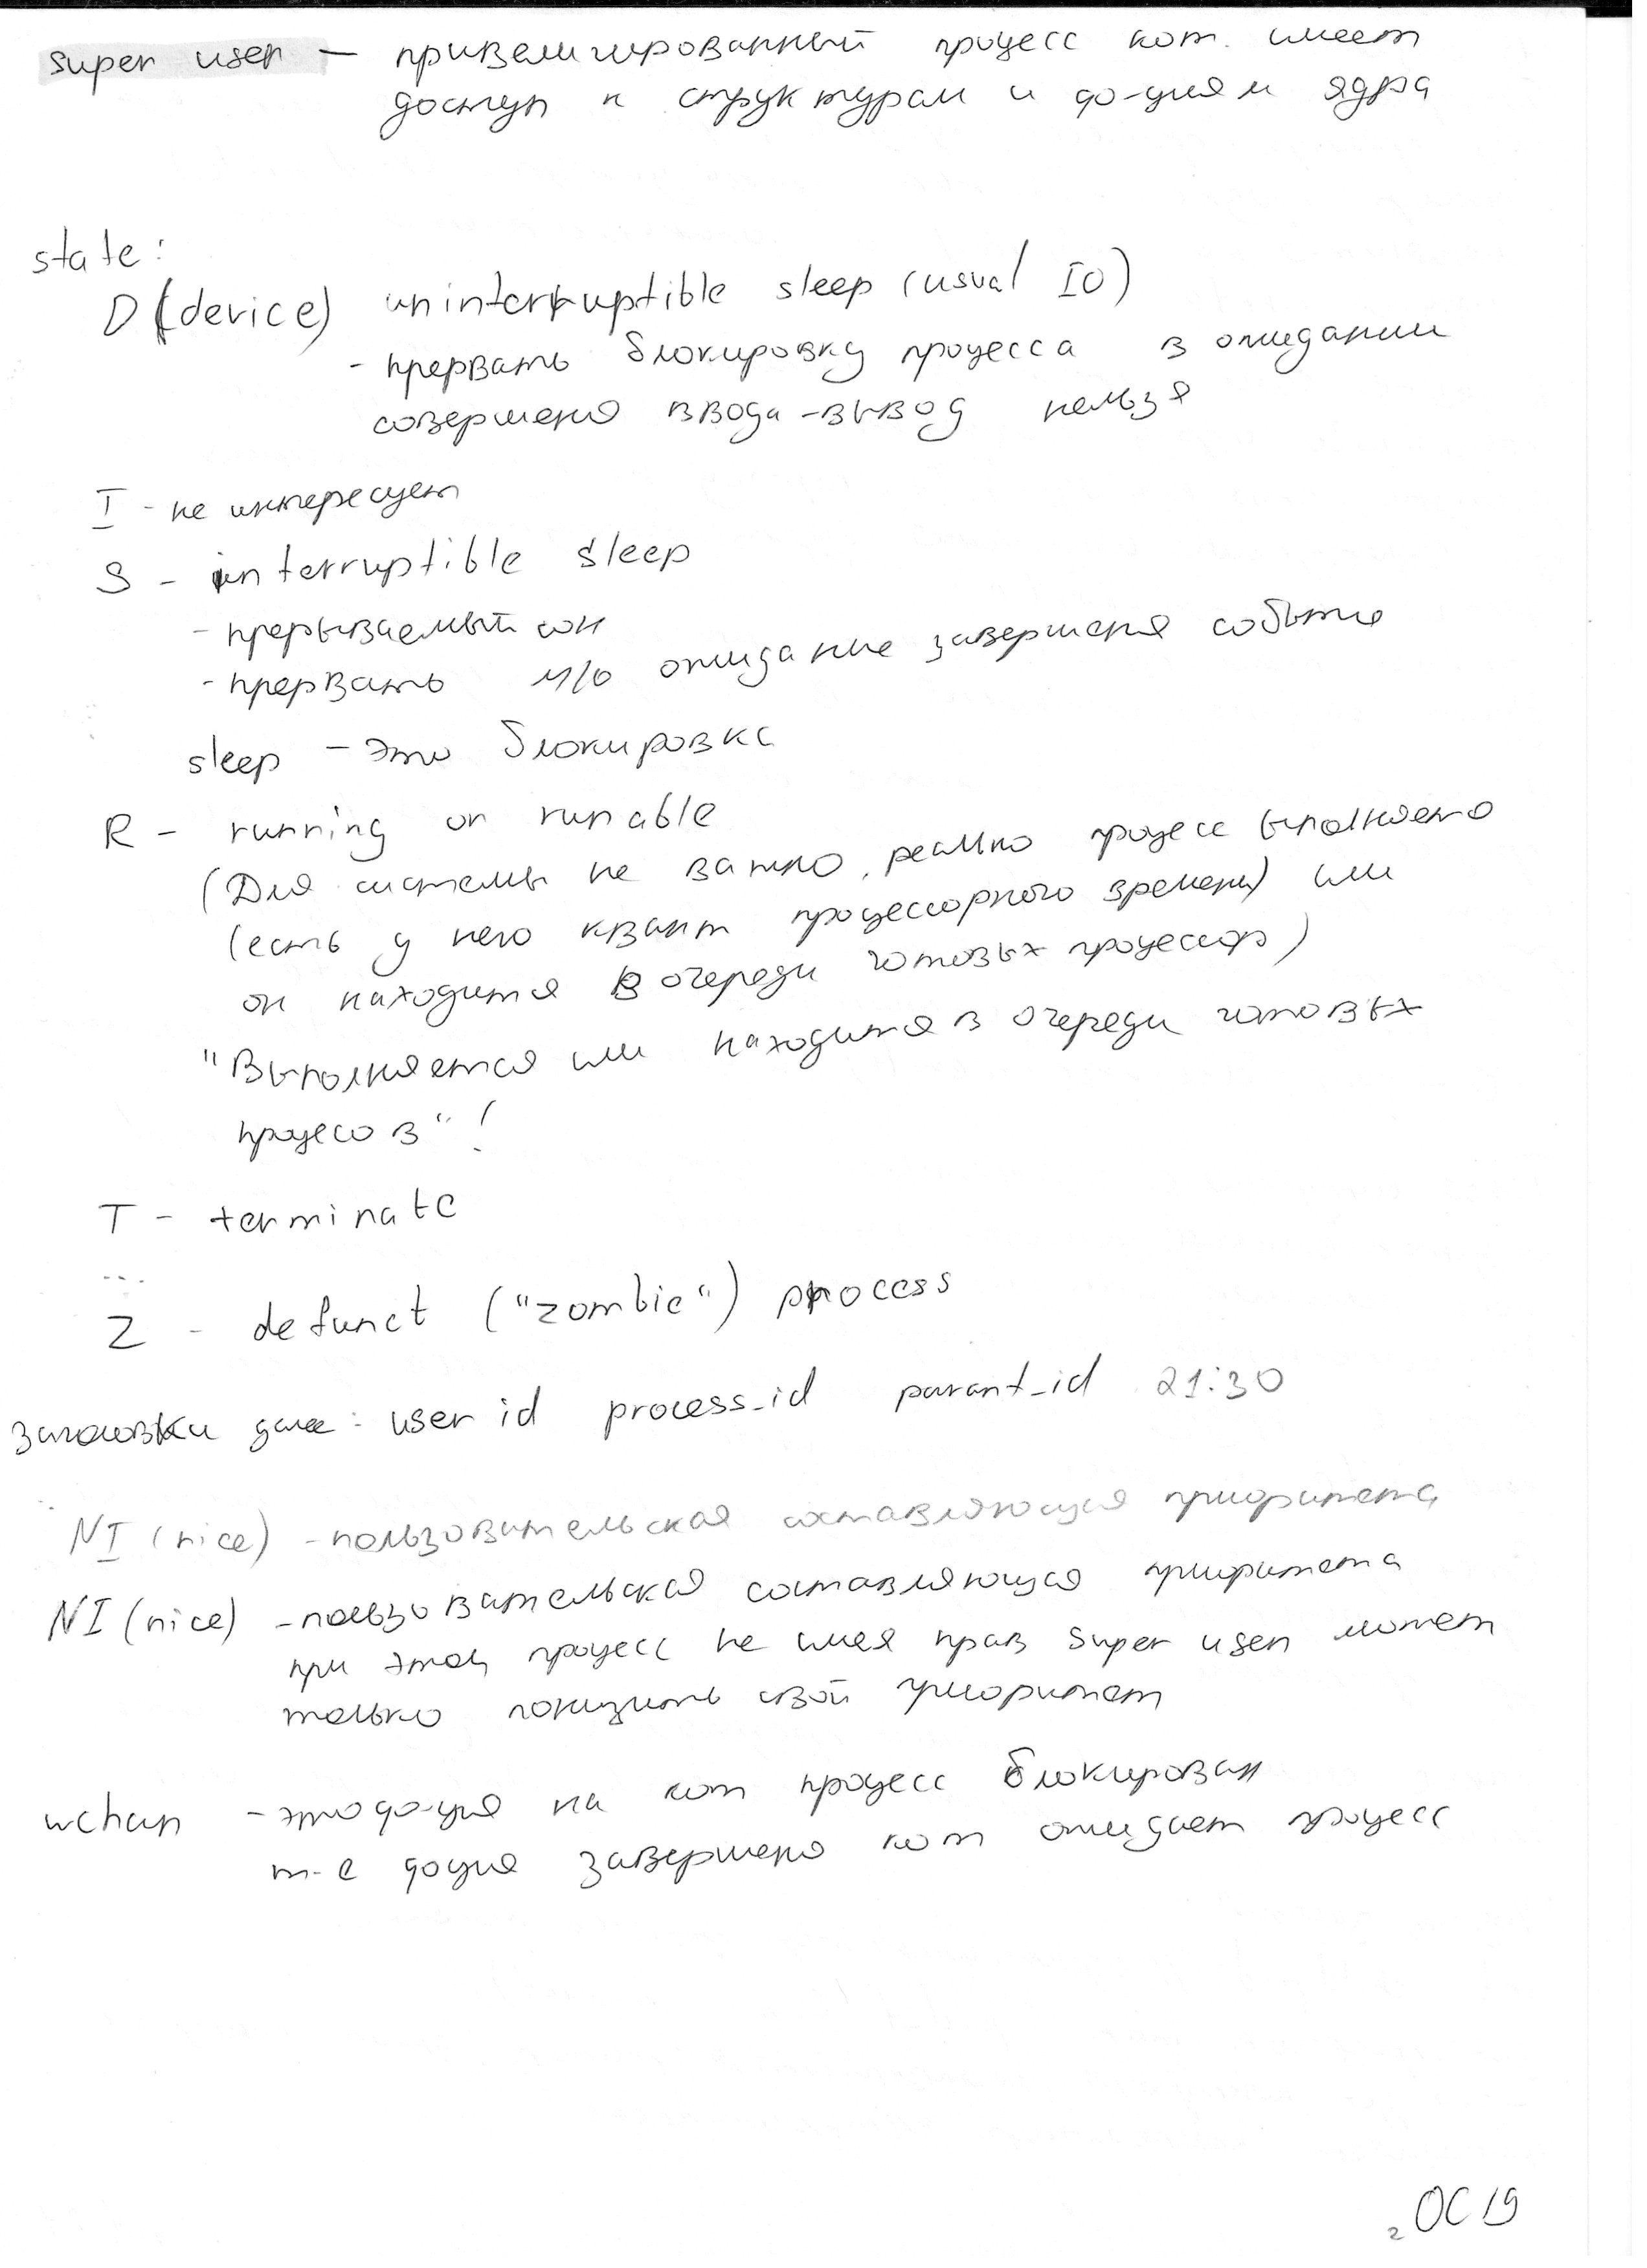 super user — привелигированный процесс кот. имеет
доступ к структурам и ф-циям ядра
state:
D (device) uninterruptible sleep (usual IO)
- прервать блокировку процесса в ожидании
совершения ввода-вывод нельзя
I - не интересует
S - interruptible sleep
- прерываемый сон
- прервать м/о ожидание завершения события
sleep - это блокировка
R - running or runable
(Для системы не важно, реально процесс выполняется
(есть у него квант процессорного времени) или
он находится в очереди готовых процессор)
"Выполняется или находится в очереди готовых
процесов"!
T - terminate
...
Z - defunct ("zombie") process
заголовки далее: user id process_id parant_id 21:30
NI (nice) - пользовательская составляющуя приоритета
NI (nice) - пользовательская составляющуя приоритета
при этом, процесс не имея прав super user может
только понизить свой приоритет
wchan - это ф-ция на кот процесс блокирован
т-е фция завершения кот ожидает процесс
2 ОС 19